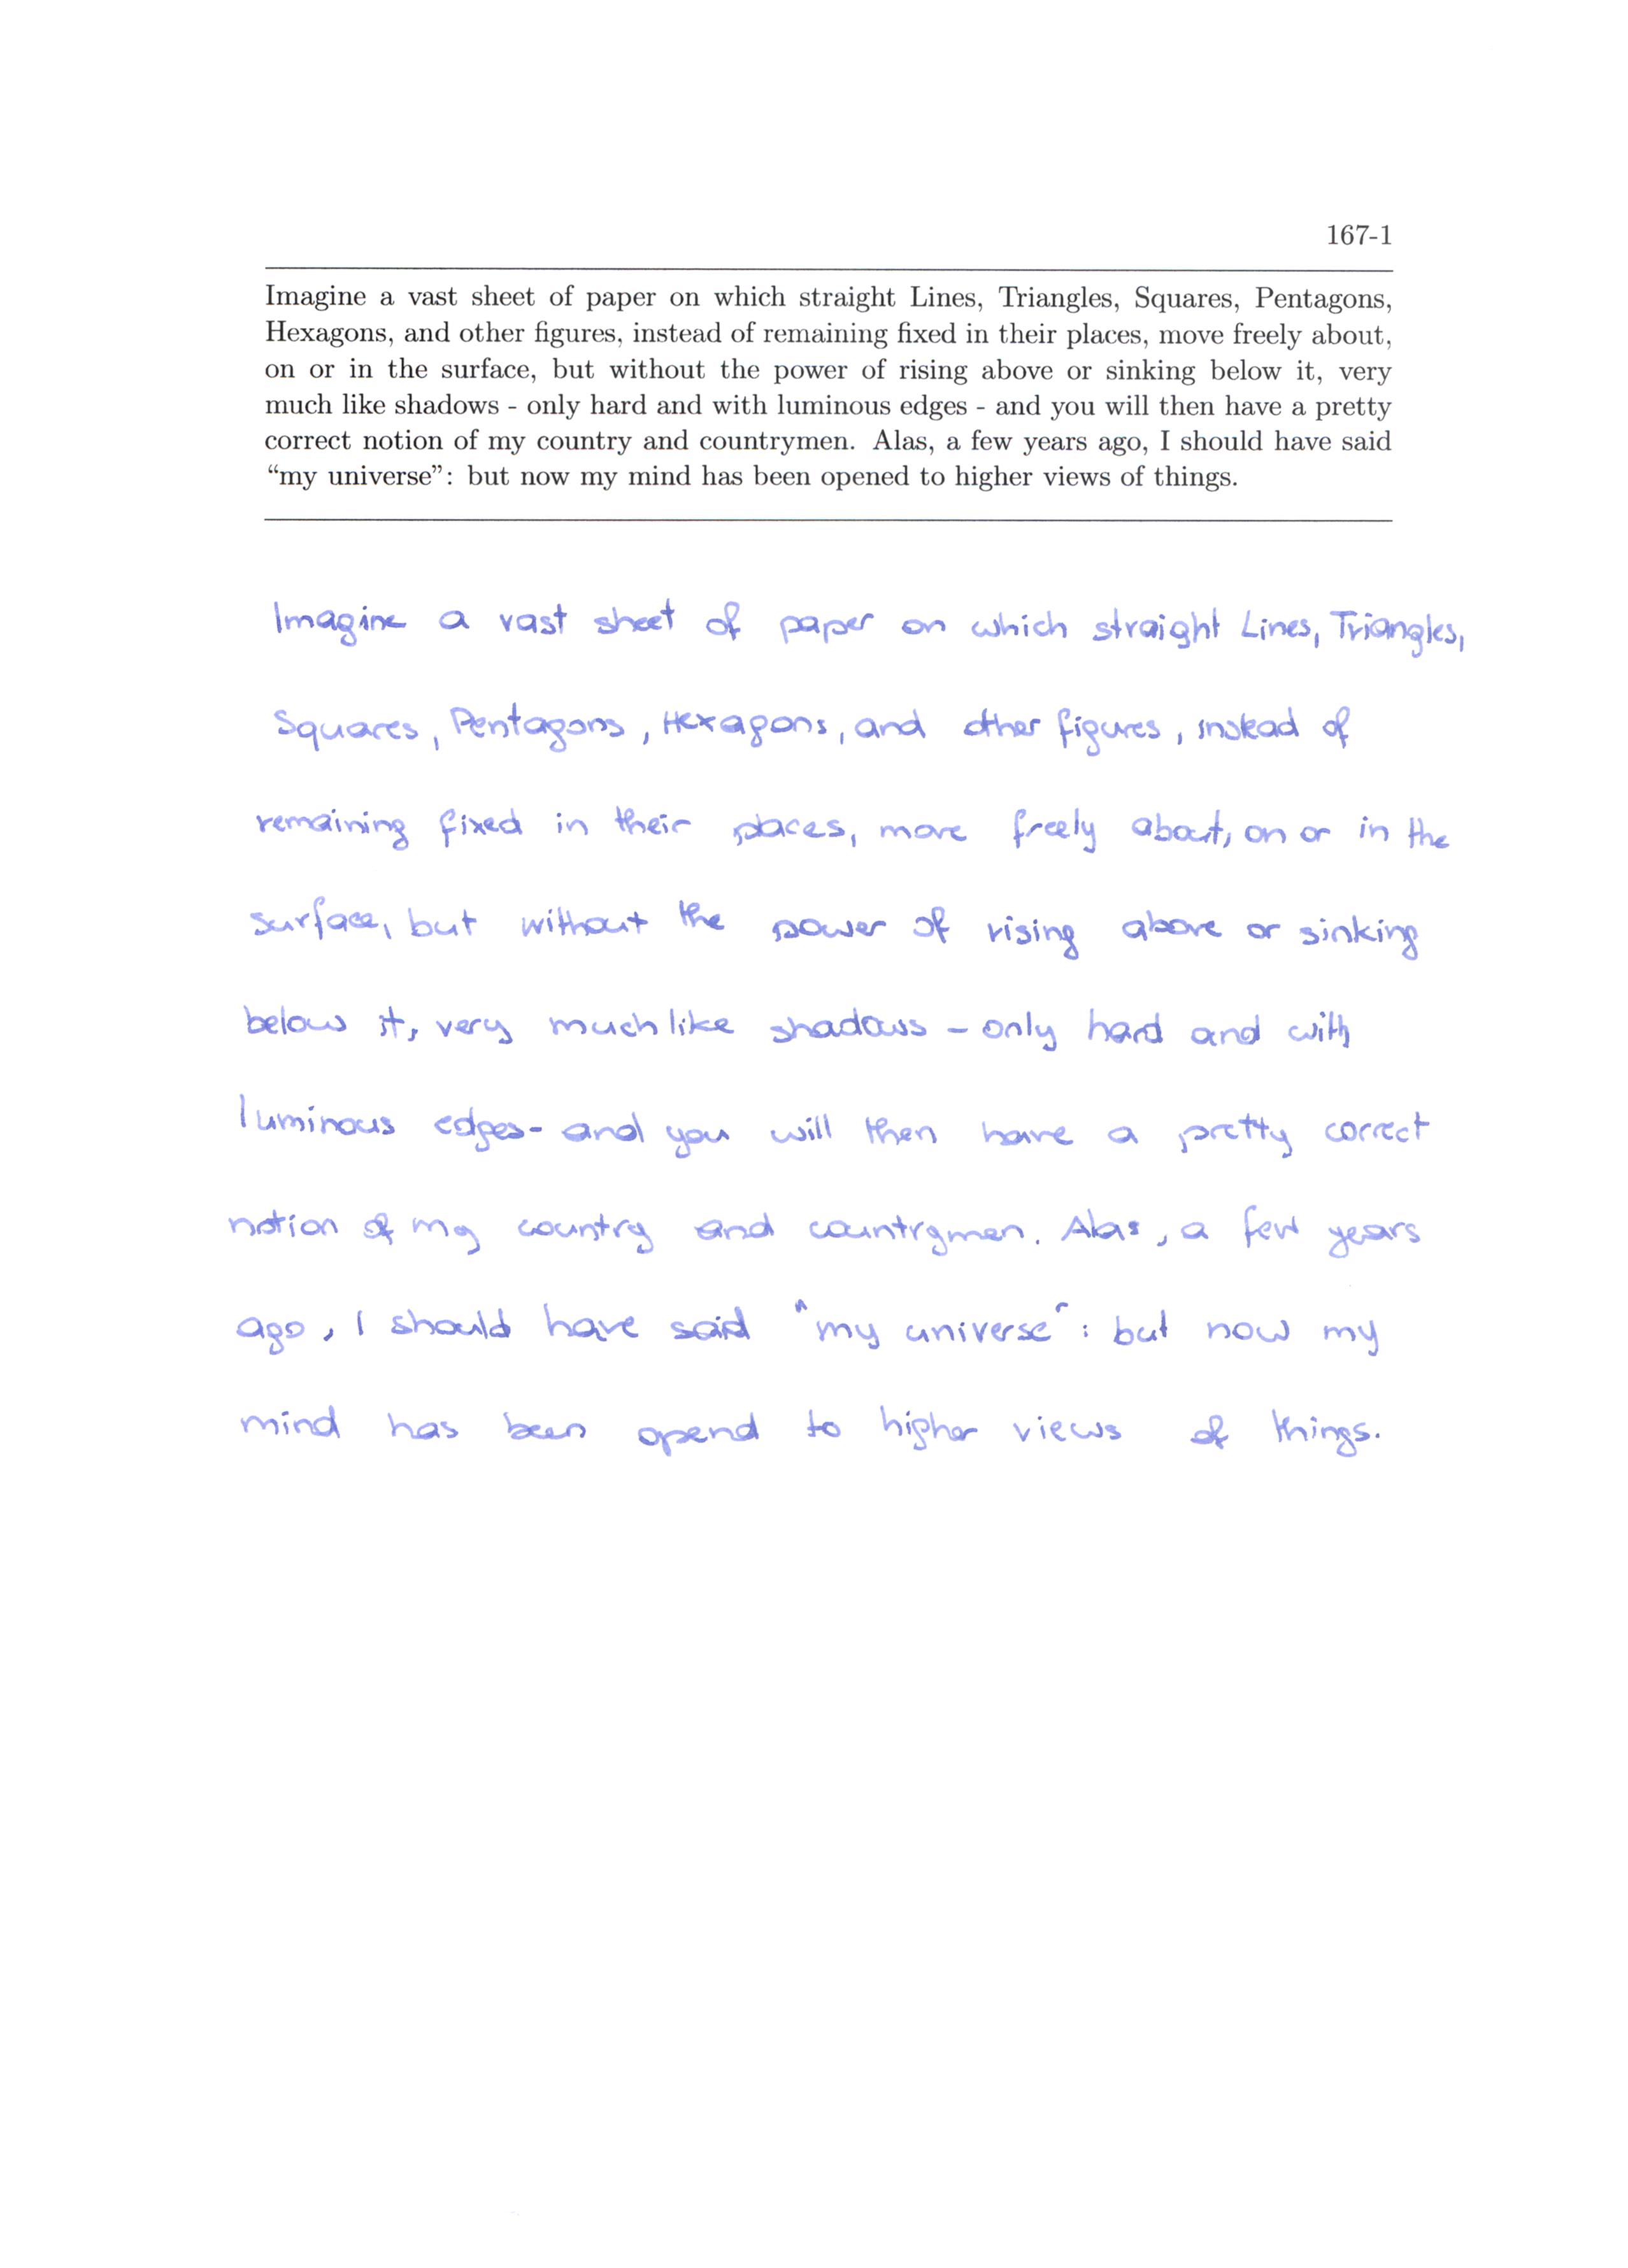 167-1
Imagine a vast sheet of paper on which straight Lines, Triangles, Squares, Pentagons,
Hexagons, and other figures, instead of remaining fixed in their places, move freely about,
on or in the surface, but without the power of rising above or sinking below it, very
much like shadows - only hard and with luminous edges - and you will then have a pretty
correct notion of my country and countrymen. Alas, a few years ago, I should have said
“my universe”: but now my mind has been opened to higher views of things.
Imagine a vast sheet of paper on which straight Lines, Triangles,
Squares, Pentagons, Hexagons, and other figures, instead of
remaining fixed in their places, move freely about, on or in the
surface, but without the power of rising above or sinking
below it, very much like shadows - only hard and with
luminous edges - and you will then have a pretty correct
notion of my country and countrymen. Alas, a few years
ago, I should have said "my universe": but now my
mind has been opend to higher views of things.